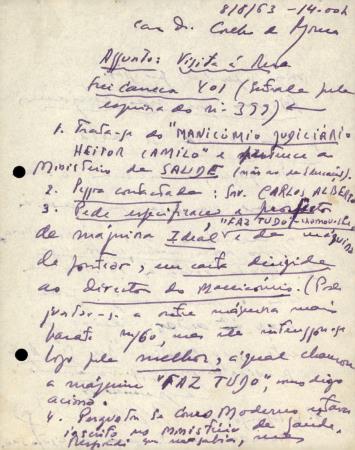 8/8/63 - 14.00h
com Dr. Coelho de
Assunto: Visita à Rua
Frei Caneca 401 (Entrada pela
esquina do nº 399) ←
1. Trata-se do "MANICÔMIO JUDICIÁRIO
HEITOR CAMILO" e pertence ao
Ministério da SAUDE (não
2. Pessoa contactada: Snr. CARLOS ALBERTO
3. Pede especificações e
"FAZ TUDO"
de máquina Ideal e de máquina
de pontear, em carta dirigida
ao director do Manicômio. (Pode
juntar-se a outra máquina mais
barata mf60, mas ele interessou-se
logo pela melhor, a qual chamou
a máquina "FAZ TUDO" como digo
acima.
4. Perguntou se Curso Moderno estava
inscrito no Ministério da Saude.
Respondi que não sabia, mas